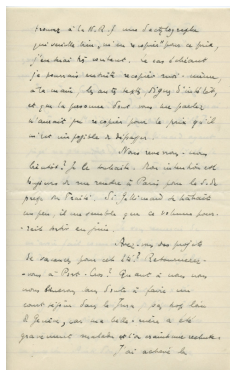 trouver à la N.R.F. une dactylographe
qui veuille bien "me recopier" pour ce prix,
j'en serais très content. Le cas échéant
je pourrais ensuite recopier moi-même
à la main les autres textes dignes d'intérêt,
et que la personne dont vous me parlez
n'aurait pu recopier pour le prix qu'il
m'est impossible de dépasser.
Nous reverrons-nous
bientôt? Je le souhaite. Mon intention est
toujours de me rendre à Paris pour le
du Traité. Si Gallimard se hâtait
un peu, il me semble que ce volume pour-
rait sortir en juin.
Avez-vous des projets
de vacances pour cet été? Retournerez-
vous à Port-Cros? Quant à nous nous
nous bornerons sans doute à faire un
court séjour dans le Jura, pas trop loin
de Genève, car ma belle-mère a été
gravement malade et l'on craint une rechute.
J'ai achevé le